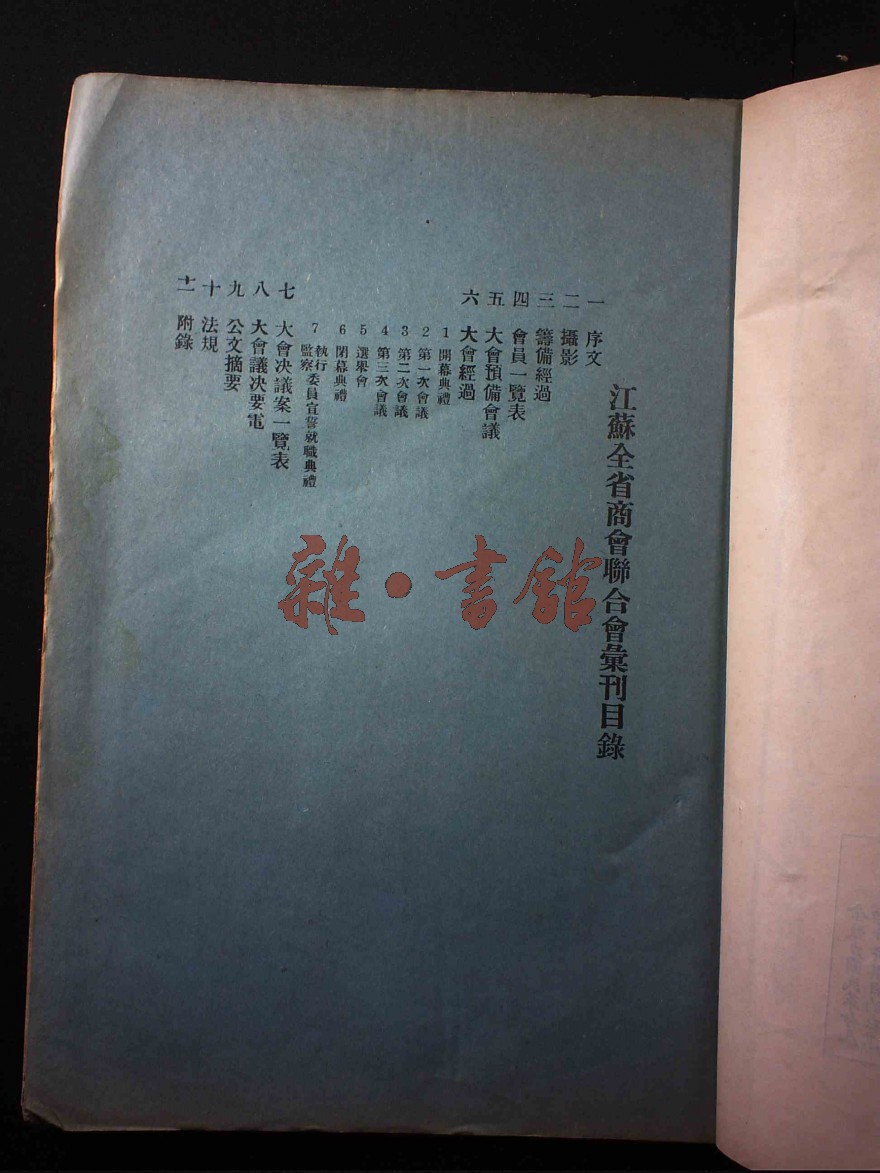 江蘇全省商會聯合會彙刊目錄
一 序文
二 攝影
三 籌備經過
四 會員一覽表
五 大會預備會議
六 大會經過
1 開幕典禮
2 第一次會議
3 第二次會議
4 第三次會議
5 選舉會
6 閉幕典禮
7 執行監察委員宣誓就職典禮
七 大會決議案一覽表
八 大會議決要電
九 公文摘要
十 法規
十一 附錄
雜·書館